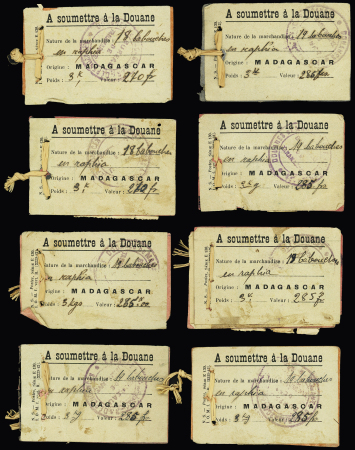 A soumettre à la Douane
Nature de la marchandise : 18 babouches
en raphia
Origine : MADAGASCAR
Poids : 3 k Valeur : 270 fr
A soumettre à la Douane
Nature de la marchandise : 19 babouches
en raphia
Origine : MADAGASCAR
Poids : 3 k Valeur : 285 fr
A soumettre à la Douane
Nature de la marchandise : 18 babouches
en raphia
Origine : MADAGASCAR
Poids : 3 k Valeur : 270 fr
A soumettre à la Douane
Nature de la marchandise : 19 babouches
en raphia
Origine : MADAGASCAR
Poids : 3 kg Valeur : 285 fr
A soumettre à la Douane
Nature de la marchandise : 19 babouches
en raphia
Origine : MADAGASCAR
Poids : 3 kgs Valeur : 285 00
A soumettre à la Douane
Nature de la marchandise : 19 babouches
en raphia
Origine : MADAGASCAR
Poids : 3 k. Valeur : 285 fr
A soumettre à la Douane
Nature de la marchandise : 19 babouches
en raphia
Origine : MADAGASCAR
Poids : 3 kg Valeur : 285 fr
A soumettre à la Douane
Nature de la marchandise : 19 babouches
en raphia
Origine : MADAGASCAR
Poids : 3 kg Valeur : 285 fr